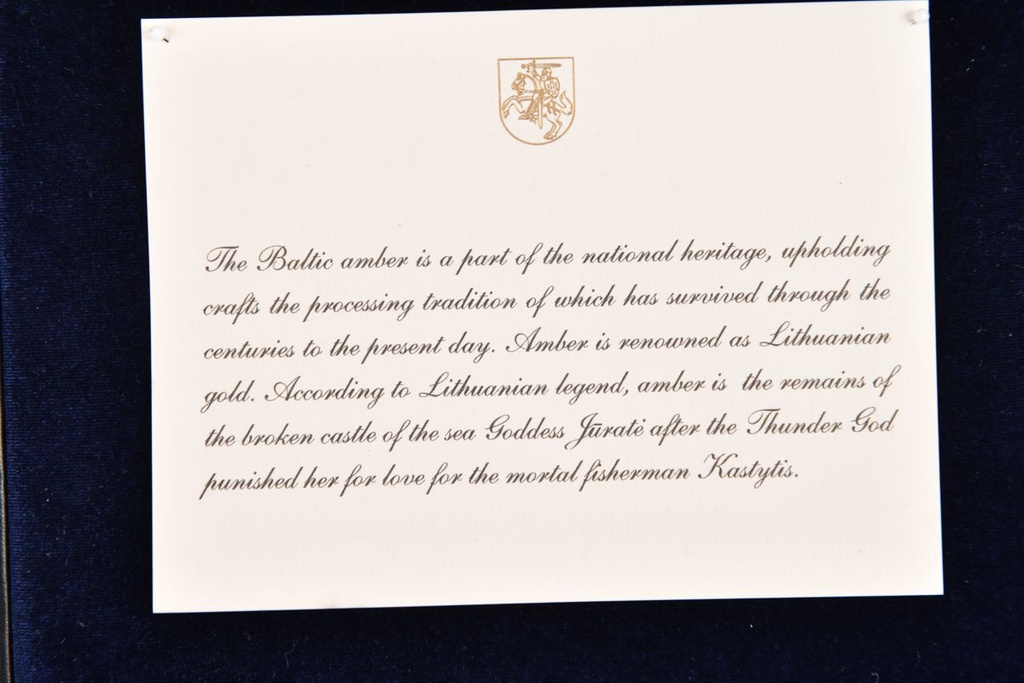 The Baltic amber is a part of the national heritage, upholding
crafts the processing tradition of which has survived through the
centuries to the present day. Amber is renowned as Lithuanian
gold. According to Lithuanian legend, amber is the remains of
the broken castle of the sea Goddess Jūratė after the Thunder God
punished her for love for the mortal fisherman Kastytis.